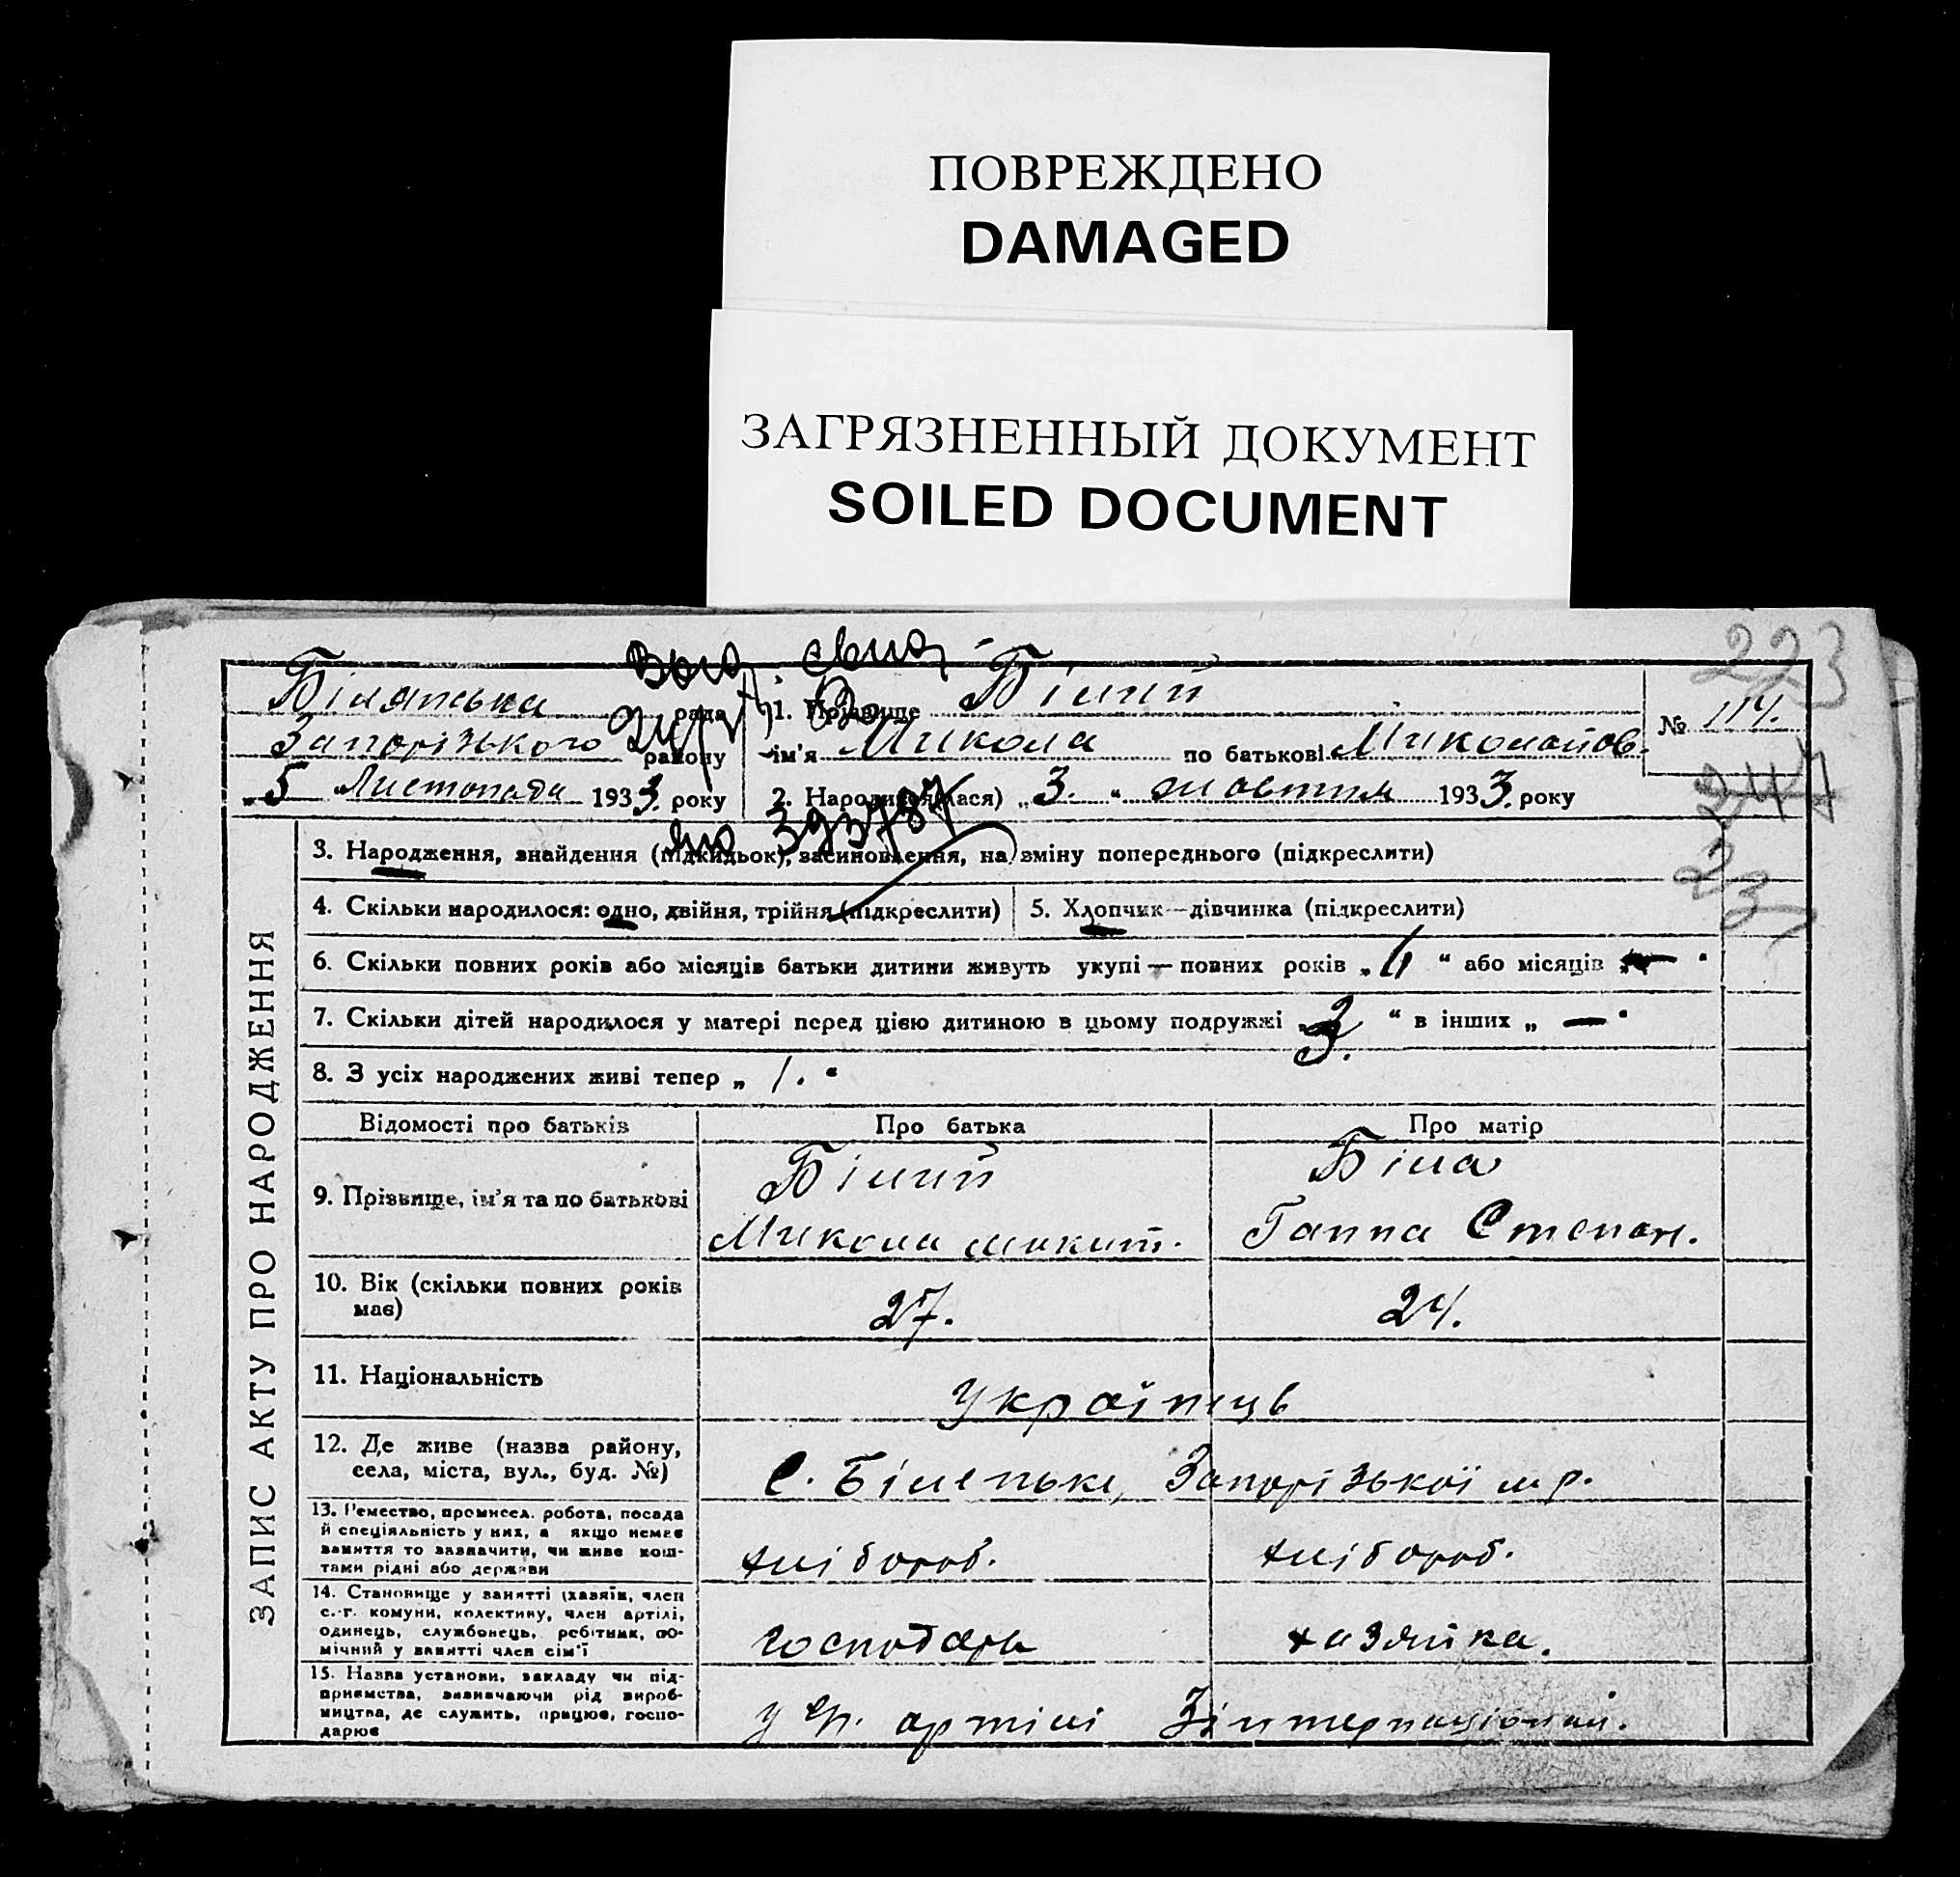 ПОВРЕЖДЕНО
DAMAGED
ЗАГРЯЗНЕННЫЙ ДОКУМЕНТ
SOILED DOCUMENT
223
рада
Запорізького району
„5 Листопада 1933. року
1. Прізвище Білий
ім'я Микола по батькові Миколайов.
№ 114.
2. Народився(лася) „3. “ жовтня 1933. року
247
231
ЗАПИС АКТУ ПРО НАРОДЖЕННЯ
3. Народження, знайдення (підкидьок), засиновлення, на зміну попереднього (підкреслити)
4. Скільки народилося: одно, двійня, трійня (підкреслити)
5. Хлопчик—дівчинка (підкреслити)
6. Скільки повних років або місяців батьки дитини живуть укупі — повних років „ “ або місяців „— “
7. Скільки дітей народилося у матері перед цією дитиною в цьому подружжі „3. “ в інших „ — “
8. З усіх народжених живі тепер „ 1. “
Відомості про батьків Про батька Про матір
9. Прізвище, ім'я та по батькові
Білий
Микола Микит.
Біла
Ганна Степан.
10. Вік (скільки повних років має)
27.
24.
11. Національність
Українець
12. Де живе (назва району,
села, міста, вул., буд. №)
с. Біленьке, Запорізької м р.
13. Ремество, промисел, робота, посада
й спеціяльність у них, а якщо немає
заняття то зазначити, чи живе кош-
тами рідні або держави
хлібороб.
хлібороб.
14. Становище у занятті (хазяїн, член
с.-г. комуни, колективу, член артілі,
одинець, службонець, робітник, по-
мічний у занятті член сім'ї
господарь
хазяйка.
15. Назва установи, закладу чи під-
приємства, визначаючи рід вироб-
ництва, де служить, працює, госпо-
дарює
у артілі 3 інтернаціонал.